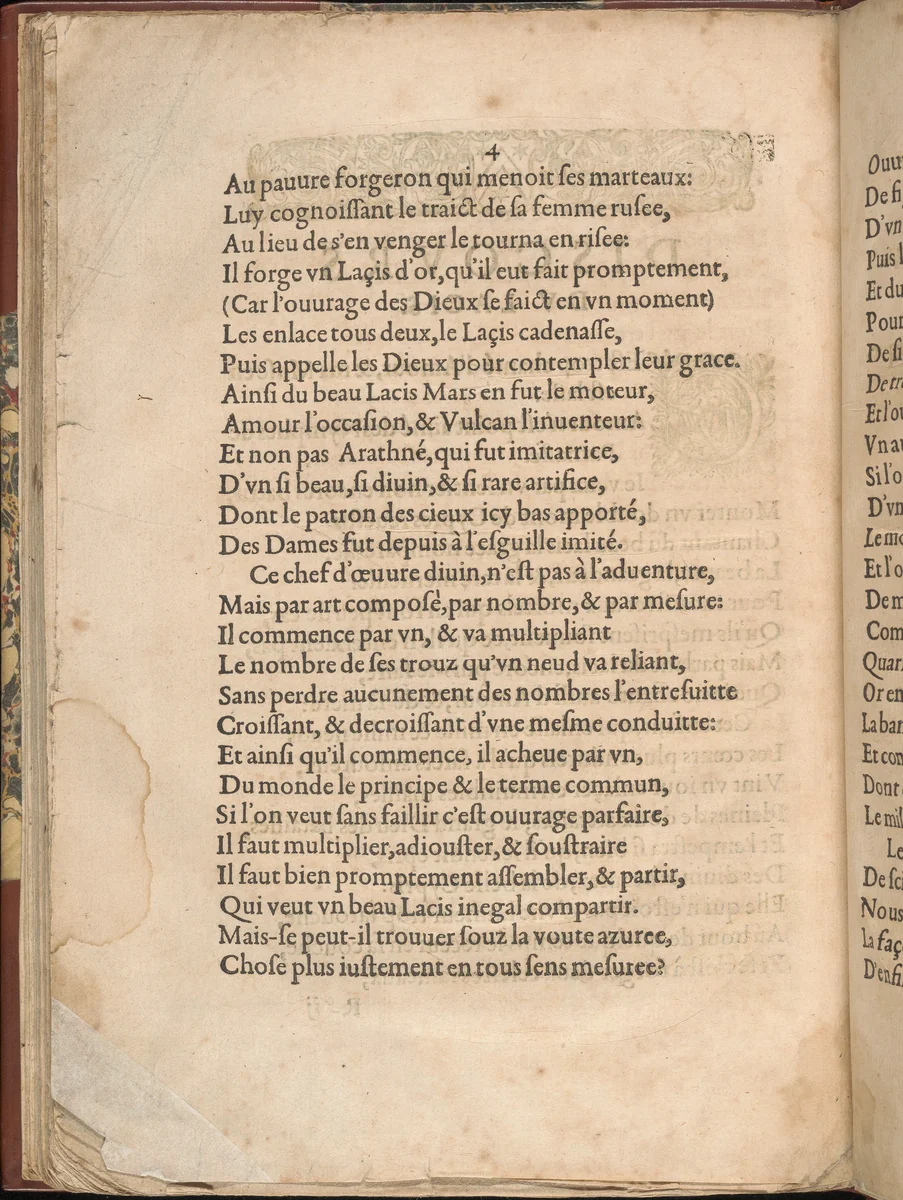 4
Au pauure forgeron qui menoit ſes marteaux:
Luy cognoiſſant le traict de ſa femme ruſee,
Au lieu de s'en venger le tourna en riſee:
Il forge vn Laçis d'or, qu'il eut fait promptement,
(Car l'ouurage des Dieux ſe faict en vn moment)
Les enlace tous deux, le Laçis cadenaſſe,
Puis appelle les Dieux pour contempler leur grace.
Ainſi du beau Lacis Mars en fut le moteur,
Amour l'occaſion, & Vulcan l'inuenteur:
Et non pas Arathné, qui fut imitatrice,
D'vn ſi beau, ſi diuin, & ſi rare artifice,
Dont le patron des cieux icy bas apporté,
Des Dames fut depuis à l'eſguille imité.
Ce chef d'œuure diuin, n'eſt pas à l'aduenture,
Mais par art composè, par nombre, & par meſure:
Il commence par vn, & va multipliant
Le nombre de ſes trouz qu'vn neud va reliant,
Sans perdre aucunement des nombres l'entreſuitte
Croiſſant, & decroiſſant d'vne meſme conduitte:
Et ainſi qu'il commence, il acheue par vn,
Du monde le principe & le terme commun,
Si l'on veut ſans faillir c'eſt ouurage parfaire,
Il faut multiplier, adiouſter, & ſouſtraire
Il faut bien promptement aſſembler, & partir,
Qui veut vn beau Lacis inegal compartir.
Mais-ſe peut-il trouuer ſouz la voute azuree,
Choſe plus iuſtement en tous ſens meſuree?
Ouu
De ſi
D'vn
Puis l
Et du
Pour
De ſi
De tr
Et l'ou
Vn au
Si l'o
D'vn
Le mo
Et l'o
De m
Com
Quar
Or en
La bar
Et con
Dont
Le mil
Le
De ſci
Nous
la faç
D'enfi